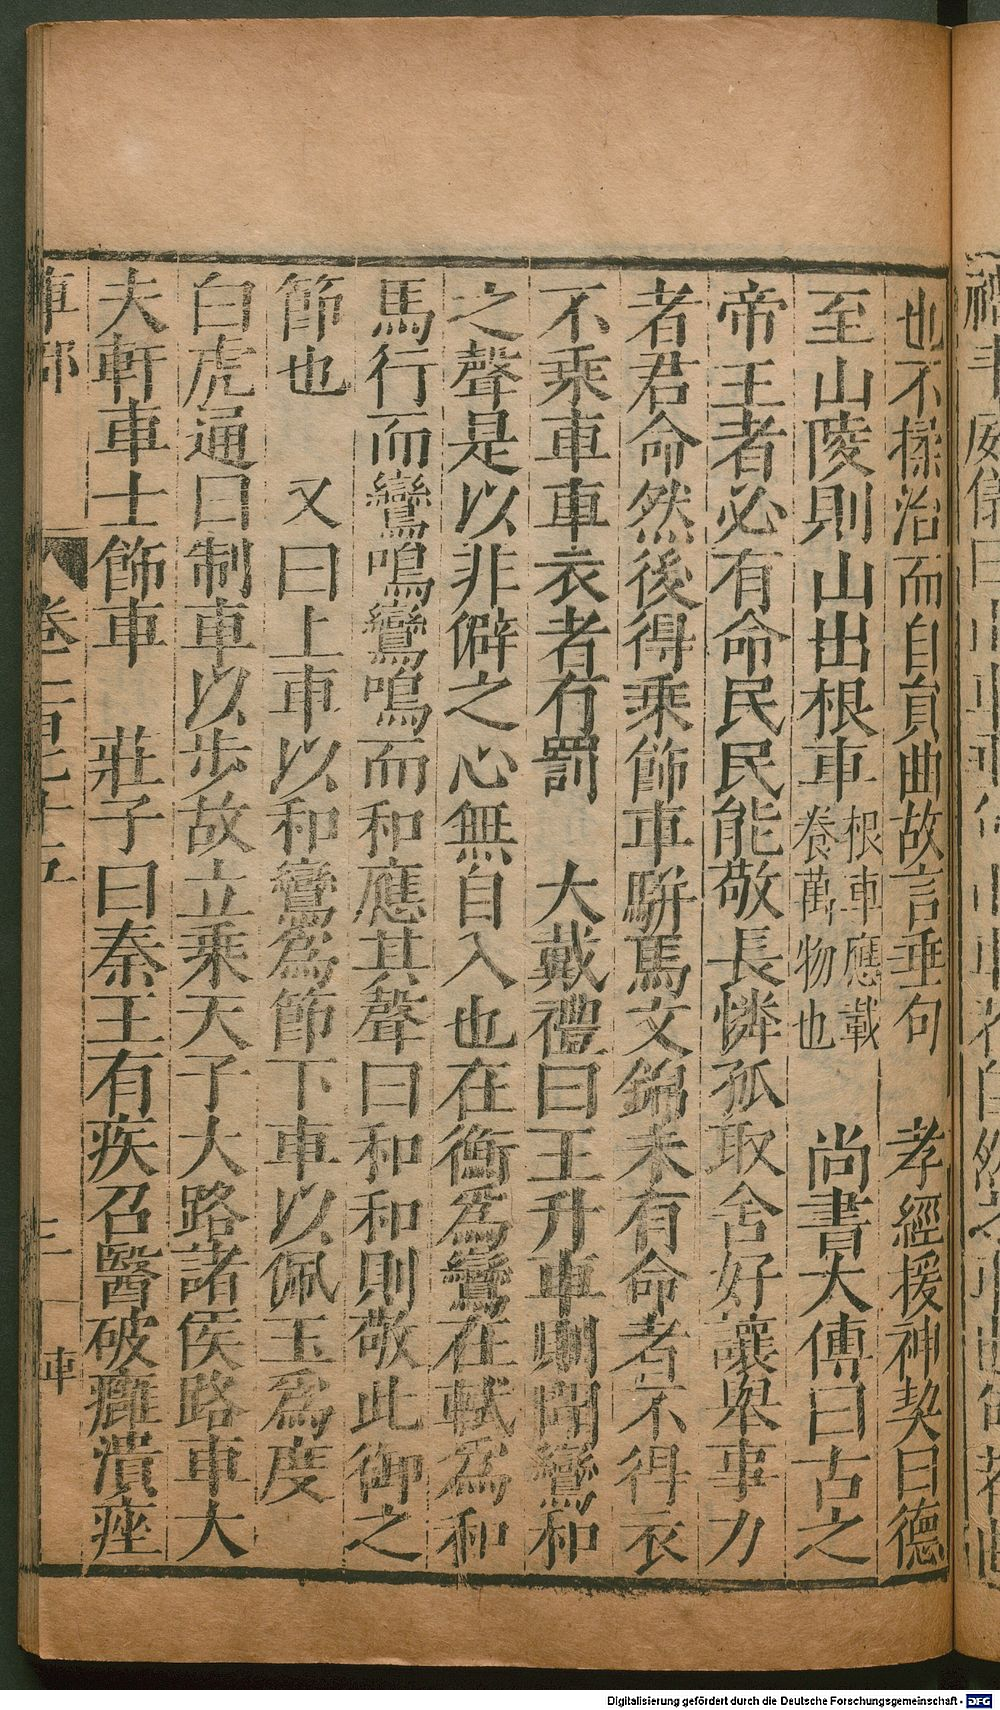 也不揉治而自員曲故言垂句　孝經援神契曰德
至山陵則山出根車根車應載養萬物也　尚書大傳曰古之
帝王者必有命民民能敬長憐孤取舍好讓舉事力
者君命然後得乘飾車駢馬文錦未有命者不得衣
不乘車車衣者有罰　大戴禮曰王升車則聞鸞和
之聲是以非僻之心無自入也在衡為鸞在軾為和
馬行而鸞鳴鸞鳴而和應其聲曰和和則敬此御之
節也　又曰上車以和鸞為節下車以佩玉為度
白虎通曰制車以步故立乘天子大路諸侯路車大
夫軒車士飾車　莊子曰秦王有疾召醫破癰潰痤
車部　卷一百七十五　三　車
Digitalisierung gefördert durch die Deutsche Forschungsgemeinschaft - DFG